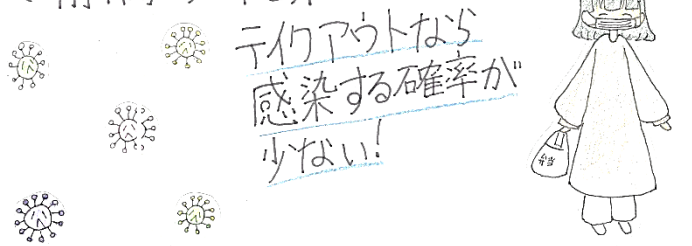 テイクアウトなら
感染する確率が
少ない!
弁当